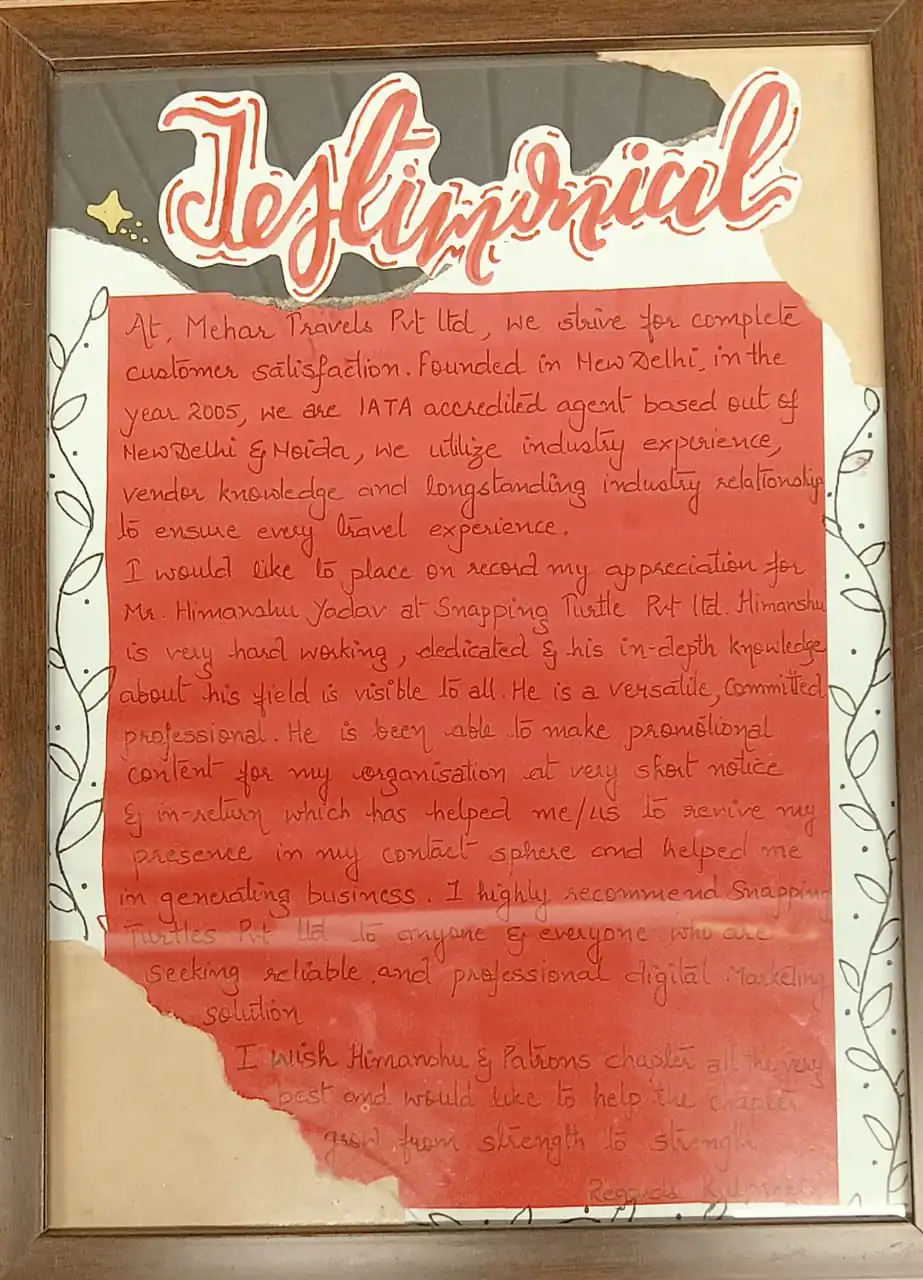 Testimonial
At, Mehar Travels Pvt ltd, we strive for complete
customer satisfaction. Founded in New Delhi, in the
year 2005, we are IATA accredited agent based out of
New Delhi & Noida, we utilize industry experience,
vendor knowledge and longstanding industry relationship
to ensure every travel experience.
I would like to place on record my appreciation for
Mr. Himanshu Yadav at Snapping Turtle Pvt ltd. Himanshu
is very hard working, dedicated & his in-depth knowledge
about his field is visible to all. He is a versatile, committed
professional. He is been able to make promotional
content for my organisation at very short notice
& in-return which has helped me/us to revive my
presence in my contact sphere and helped me
in generating business. I highly recommend Snapping
Turtles Pvt ltd to anyone & everyone who are
seeking reliable and professional digital Marketing
solution
I wish Himanshu & Patrons chapter all the very
best and would like to help the chapter
grow from strength to strength